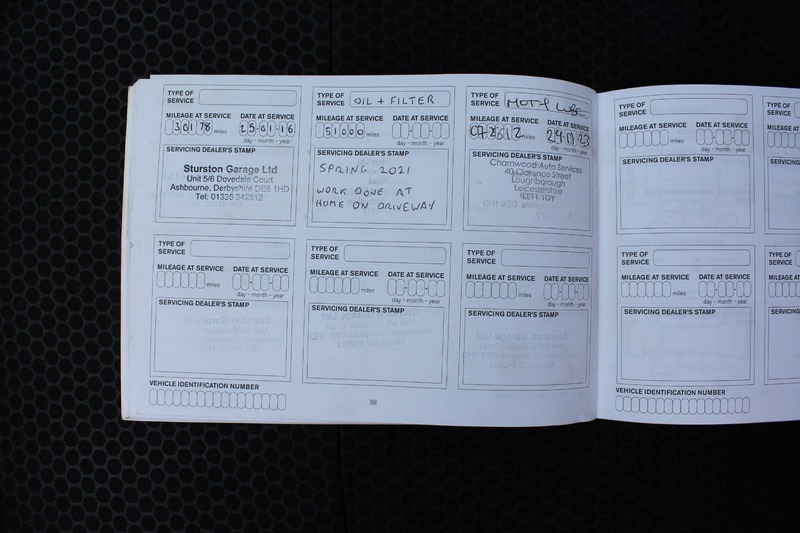 TYPE OF SERVICE
MILEAGE AT SERVICE DATE AT SERVICE
30178 miles 25-01-16
day - month - year
SERVICING DEALER'S STAMP
Sturston Garage Ltd
Unit 5/6 Dovedale Court
Ashbourne, Derbyshire DE6 1HD
Tel: 01335 342512
TYPE OF SERVICE OIL + FILTER
MILEAGE AT SERVICE DATE AT SERVICE
51000 miles
day - month - year
SERVICING DEALER'S STAMP
SPRING 2021
WORK DONE AT
HOME ON DRIVEWAY
TYPE OF SERVICE MOT +
MILEAGE AT SERVICE DATE AT SERVICE
miles
day - month - year
SERVICING DEALER'S STAMP
Charnwood Auto Services
40 Clarence Street
Loughborough
Leicestershire
LE11 1DY
TYPE OF SERVICE
MILEAGE AT SERVICE DATE AT SERVICE
miles
day - month - year
SERVICING DEALER'S STAMP
TYPE OF SERVICE
MILEAGE AT SERVICE DATE AT SERVICE
miles
day - month - year
SERVICING DEALER'S STAMP
TYPE OF SERVICE
MILEAGE AT SERVICE DATE AT SERVICE
miles
day - month - year
SERVICING DEALER'S STAMP
VEHICLE IDENTIFICATION NUMBER
38
TYPE OF SERVICE
MILEAGE AT SERVICE DATE AT SERVICE
miles
day - month - year
SERVICING DEALER'S STAMP
TYPE OF SERVICE
MILEAGE AT SERVICE DATE AT SERVICE
miles
day - month - year
SERVICING DEALER'S STAMP
VEHICLE IDENTIFICATION NUMBER